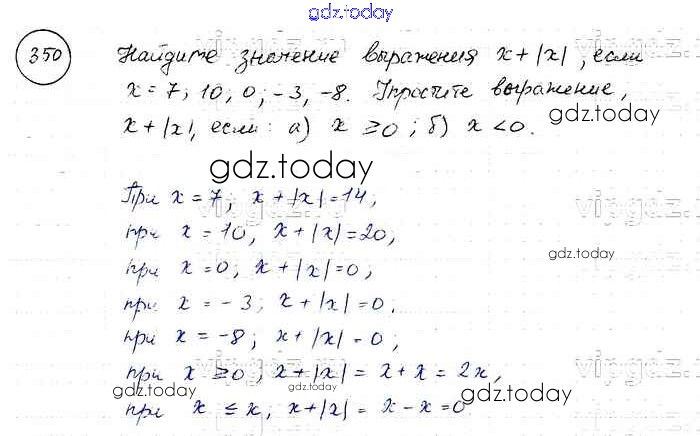 gdz.today
350
Найдите значение выражения x + |x|, если
x = 7; 10, 0, -3, -8. Упростите выражение,
x + |x|, если: а) x ≥ 0; б) x < 0.
gdz.today
При x = 7; x + |x| = 14;
при x = 10, x + |x| = 20;
gdz.today
при x = 0; x + |x| = 0;
при x = -3; x + |x| = 0.
при x = -8; x + |x| = 0;
при x ≥ 0, x + |x| = x + x = 2x,
gdz.today gdz.today gdz.today
при x ≤ x; x + |x| = x - x = 0